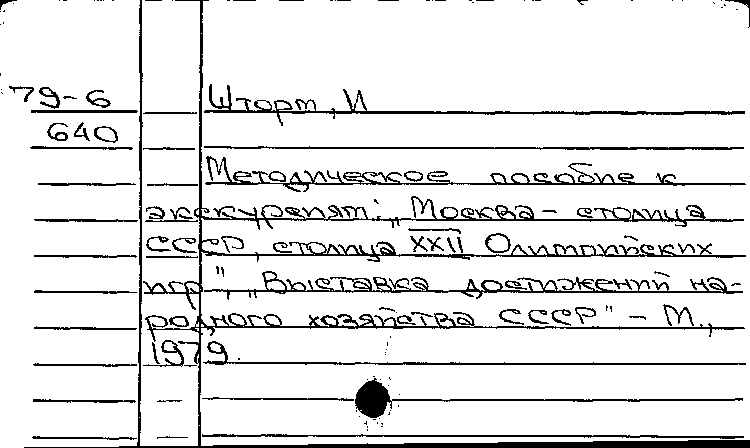 79-6 Шторм, И
640
Методическое пособие к
экскурсиям: „Москва - столица
СССР, столица XXII Олимпийских
игр", „Выставка достижений на-
родного хозяйства СССР" - М.,
1979.